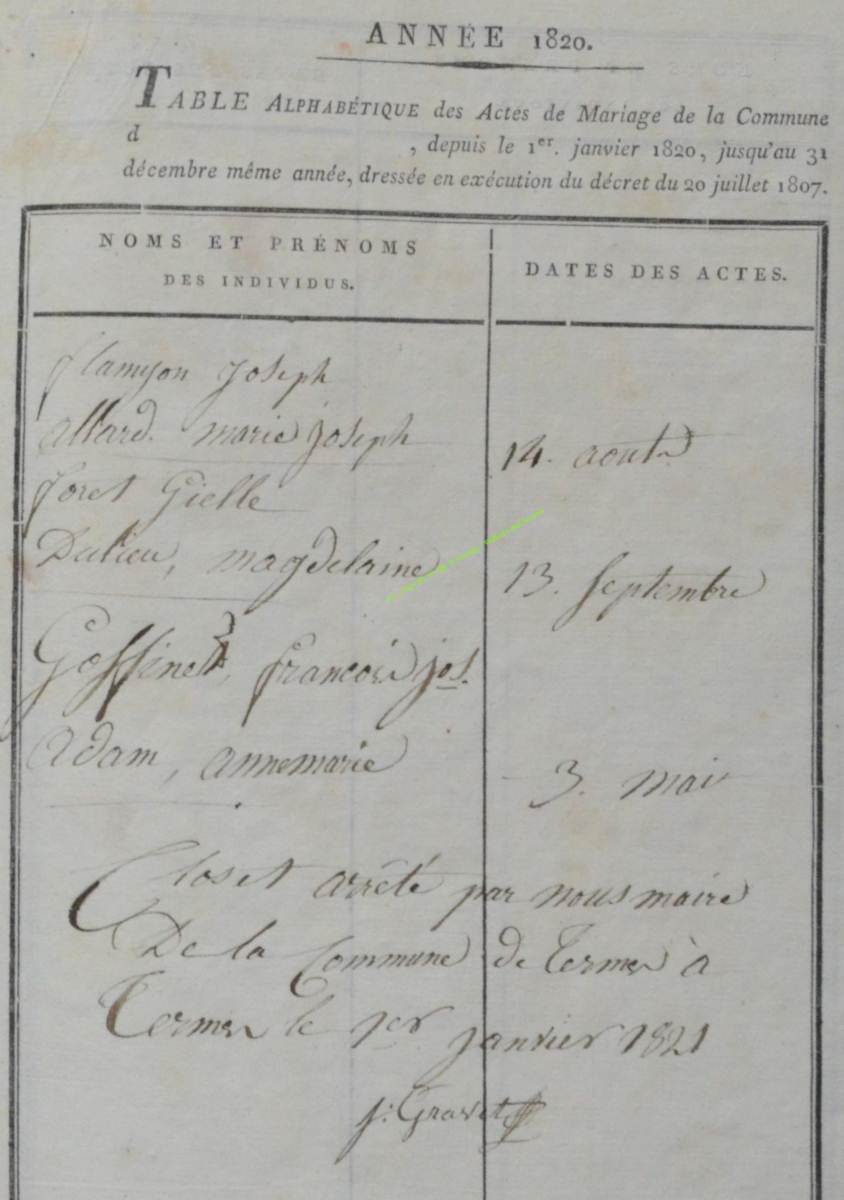 ANNÉE 1820.
TABLE ALPHABÉTIQUE des Actes de Mariage de la Commune
d , depuis le 1er. janvier 1820, jusqu'au 31
décembre même année, dressée en exécution du décret du 20 juillet 1807.
NOMS ET PRÉNOMS
DES INDIVIDUS.
DATES DES ACTES.
flamyon Joseph
allard. marie joseph 14. aout
foret Gielle
Dulieu, magdelaine 13. Septembre
Goffinet, francois jos.
adam, annemarie 3. mai
Clos et arrêté par nous maire
De la Commune de Termes à
Termes le 1er janvier 1821
j: Gravet